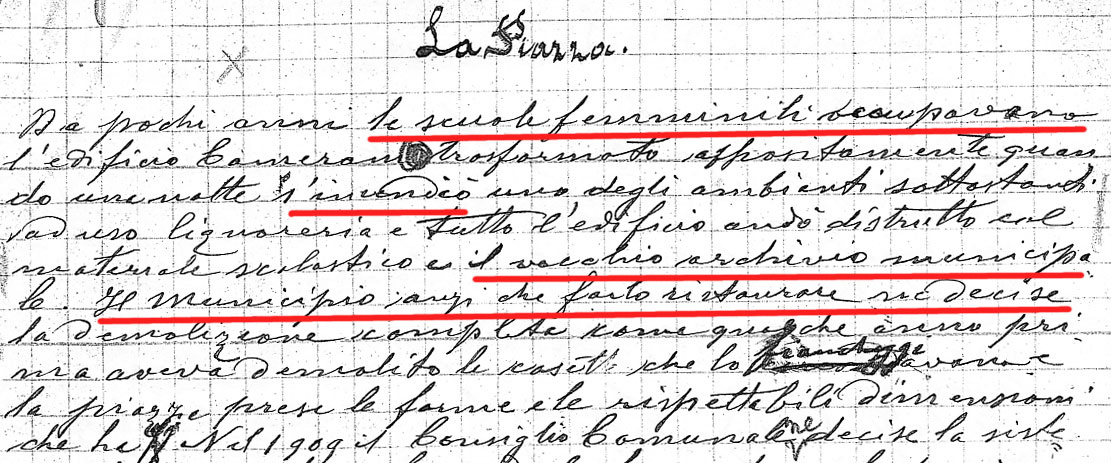 La Piazza.
Da pochi anni le scuole femminili occupavano
l'edificio Cameran trasformato appositamente quan
do una notte s'incendiò uno degli ambienti sottostanti
ad uso liquoreria e tutto l'edificio andò distrutto col
materiale scolastico e il vecchio archivio municipa
le. Il Municipio anzi che farlo ristaurare ne decise
la demolizione completa come qualche anno pri
ma aveva demolito le casette che lo e
la piazza prese le forme e le rispettabili dimensioni
che ha Nel 1909 il Consiglio Comunale ne decise la siste